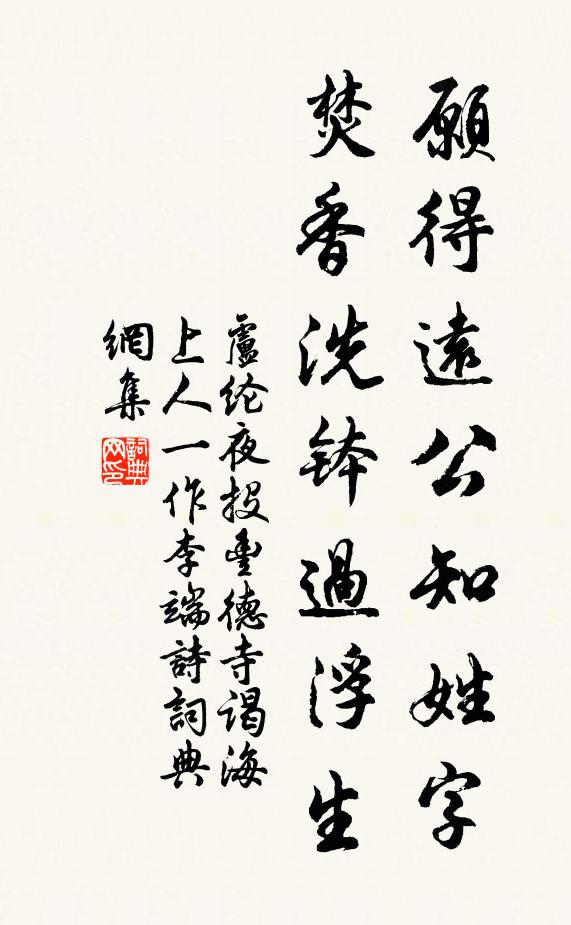 願得遠公知姓字
焚香洗鉢過浮生
盧纶夜投豐德寺谒海
上人一作李端詩詞典
網集
詞典
网印